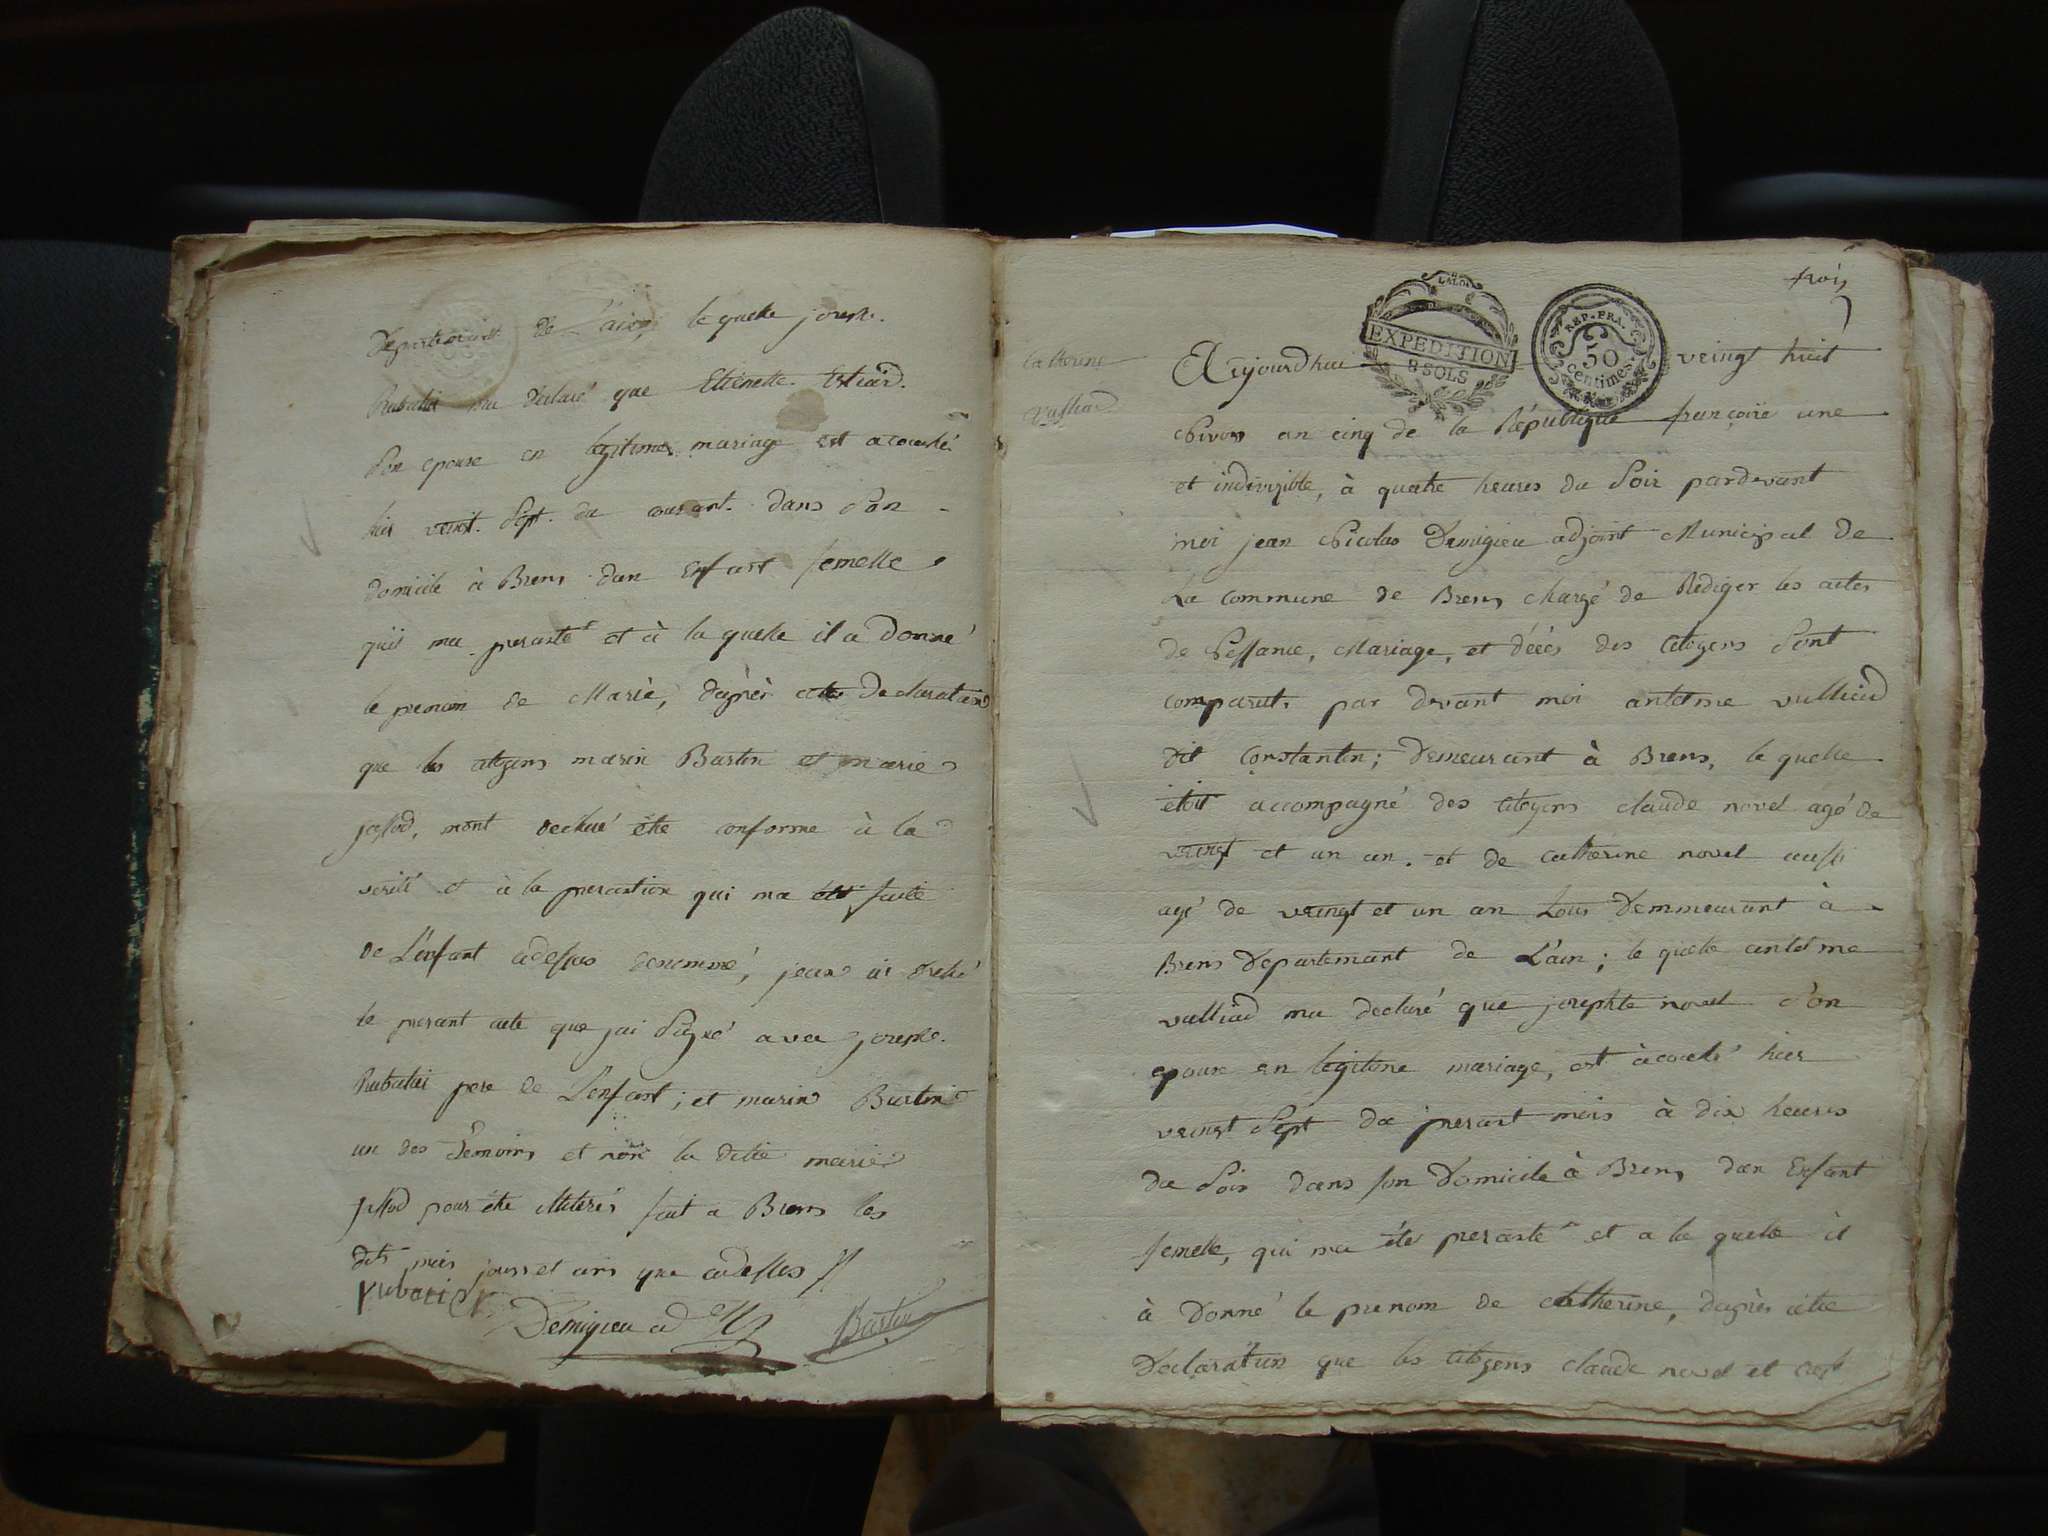 Departemant de L'ain, le quelle joseph
Rubatié ma declaré que Etienette
Son epouse en legitimes mariage est acouché
hier veint Sept du courant dans Son
domicile à Brens dun Enfant femelle
quil ma presanté et à la quelle il a Donné
le prenom de Marie, daprès cette declaration
que les citoyens marin Bartin et marie
jassod, mont declaré être conforme à la
verité et à la presantion qui ma été faite
de L'enfant cidessus denommé, jean ai dressé
le presant acte que jai Signé avec joseph
Rubatié pere de L'enfant; et marin Bartin
un des Temoins et non la ditte marie
jassod pour être illiteré fait a Brens les
dits mois jours et ans que cidessus //
rubatier
Demigieu ad M Bartin
trois
LA LOI
EXPEDITION
9 SOLS
REP. FRA.
50
centimes
catherine
vulliad
Aujourdhui veingt huit
Nivos an cinq de la République françoise une
et indivizible, à quatre heures du Soir pardevant
moi jean Nicolas Demigieu adjoint Municipal de
La commune de Brens chargé de Rediger les actes
de Nessance, Mariage, et décés des Citoyens Sont
comparut, par devant moi antelme vulliad
dit Constantin; demeurant à Brens, le quelle
étoit accompagné des citoyens claude novel agé de
veingt et un an. et de catherine novel aussi
agé de veingt et un an tous Demmeurant à
Brens Departemant de L'ain; le quelle antelme
vulliad ma declaré que josephte novel S'on
epouse en legitime mariage, est àcouché hier
veingt Sept du presant mois à dix heures
du Soir dans son Domicile à Brens dun Enfant
femelle, qui ma été presanté et a la quelle il
à Donné le prenom de Catherine, daprès cette
Declaration que les citoyens claude novel et cath